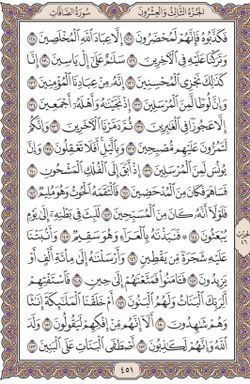 الجزء الثالث والعشرون سورة الصافات
فَكَذَّبُوهُ فَإِنَّهُمْ لَمُحْضَرُونَ ١٢٧ إِلَّا عِبَادَ ٱللَّهِ ٱلْمُخْلَصِينَ ١٢٨
وَتَرَكْنَا عَلَيْهِ فِى ٱلْـَٔاخِرِينَ ١٢٩ سَلَٰمٌ عَلَىٰٓ إِلْ يَاسِينَ ١٣٠
إِنَّا كَذَٰلِكَ نَجْزِى ٱلْمُحْسِنِينَ ١٣١ إِنَّهُۥ مِنْ عِبَادِنَا ٱلْمُؤْمِنِينَ ١٣٢
وَإِنَّ لُوطًا لَّمِنَ ٱلْمُرْسَلِينَ ١٣٣ إِذْ نَجَّيْنَٰهُ وَأَهْلَهُۥٓ أَجْمَعِينَ ١٣٤
إِلَّا عَجُوزًا فِى ٱلْغَٰبِرِينَ ١٣٥ ثُمَّ دَمَّرْنَا ٱلْـَٔاخَرِينَ ١٣٦ وَإِنَّكُمْ
لَتَمُرُّونَ عَلَيْهِم مُّصْبِحِينَ ١٣٧ وَبِٱلَّيْلِ أَفَلَا تَعْقِلُونَ ١٣٨ وَإِنَّ
يُونُسَ لَمِنَ ٱلْمُرْسَلِينَ ١٣٩ إِذْ أَبَقَ إِلَى ٱلْفُلْكِ ٱلْمَشْحُونِ ١٤٠
فَسَاهَمَ فَكَانَ مِنَ ٱلْمُدْحَضِينَ ١٤١ فَٱلْتَقَمَهُ ٱلْحُوتُ وَهُوَ مُلِيمٌ ١٤٢
فَلَوْلَآ أَنَّهُۥ كَانَ مِنَ ٱلْمُسَبِّحِينَ ١٤٣ لَلَبِثَ فِى بَطْنِهِۦٓ إِلَىٰ يَوْمِ
يُبْعَثُونَ ١٤٤ فَنَبَذْنَٰهُ بِٱلْعَرَآءِ وَهُوَ سَقِيمٌ ١٤٥ وَأَنۢبَتْنَا
عَلَيْهِ شَجَرَةً مِّن يَقْطِينٍ ١٤٦ وَأَرْسَلْنَٰهُ إِلَىٰ مِا۟ئَةِ أَلْفٍ أَوْ
يَزِيدُونَ ١٤٧ فَـَٔامَنُوا۟ فَمَتَّعْنَٰهُمْ إِلَىٰ حِينٍ ١٤٨ فَٱسْتَفْتِهِمْ
أَلِرَبِّكَ ٱلْبَنَاتُ وَلَهُمُ ٱلْبَنُونَ ١٤٩ أَمْ خَلَقْنَا ٱلْمَلَٰٓئِكَةَ إِنَٰثًا
وَهُمْ شَٰهِدُونَ ١٥٠ أَلَآ إِنَّهُم مِّنْ إِفْكِهِمْ لَيَقُولُونَ ١٥١ وَلَدَ
ٱللَّهُ وَإِنَّهُمْ لَكَٰذِبُونَ ١٥٢ أَصْطَفَى ٱلْبَنَاتِ عَلَى ٱلْبَنِينَ ١٥٣
٤٥١